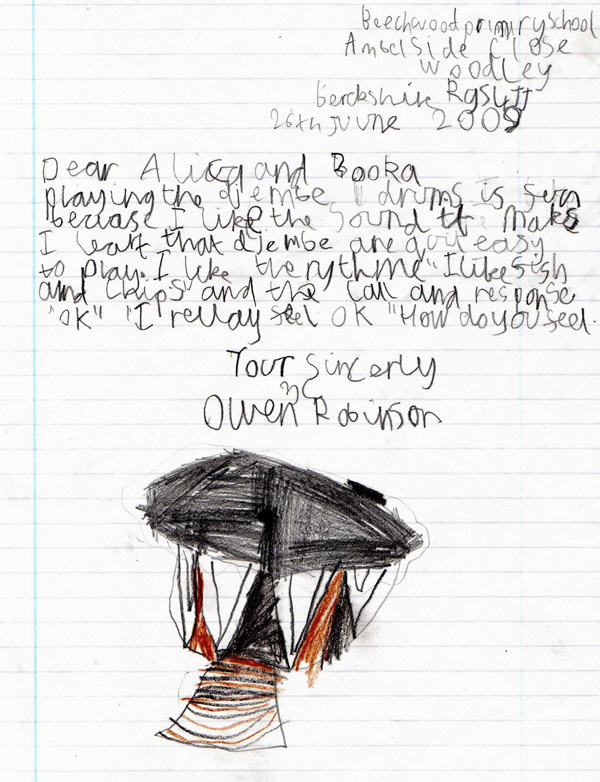 Beechwood primiry school
Ambelside Close
Woodley
Berckshire
26th juune 2009
Dear Alicg and Booka
playing the djembe drums is fun
becuase I like the sound it maks
I leart that djembe are quit easy
to play. I like the rythme "I like fish
and chips" and the call and response
"OK" "I rellay feel OK "How do you feel.
Your Sincerly
Owen Robinson